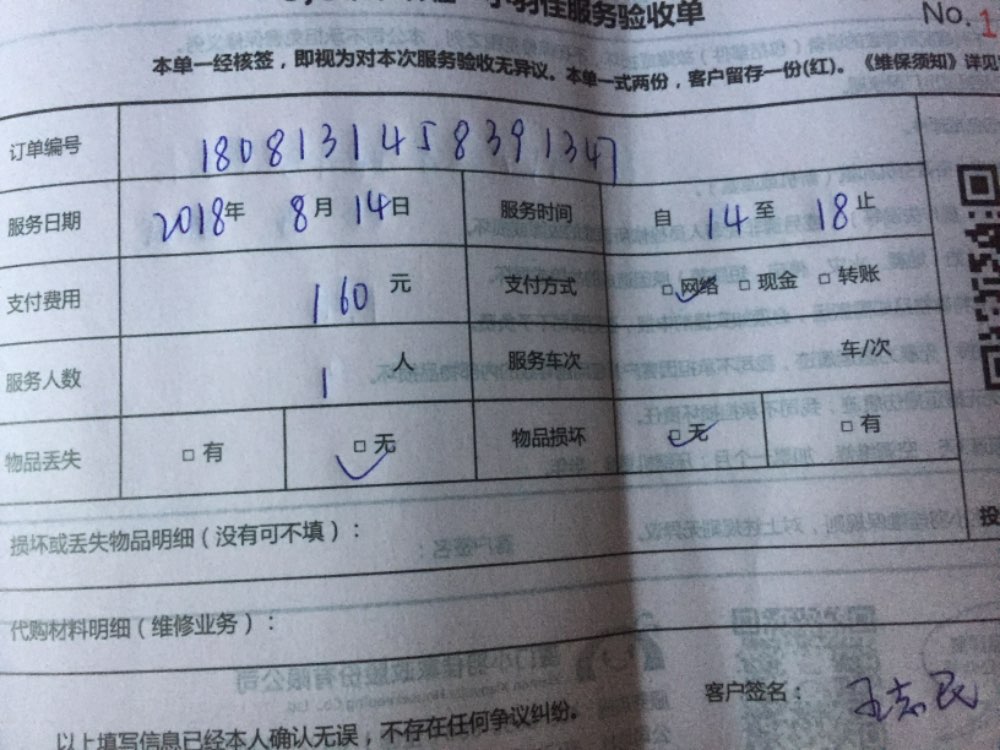 小羽佳服务验收单
No.1
本单一经核签，即视为对本次服务验收无异议。本单一式两份，客户留存一份(红)。《维保须知》详见
订单编号 1808131458391347
服务日期 2018年 8月 14日 服务时间 自 14至 18止
支付费用 160 元 支付方式 □网络 □现金 □转账
服务人数 1 人 服务车次 车/次
物品丢失 □有 □无 物品损坏 □无 □有
损坏或丢失物品明细（没有可不填）：
投
代购材料明细（维修业务）：
客户签名： 王志民
以上填写信息已经本人确认无误，不存在任何争议纠纷。